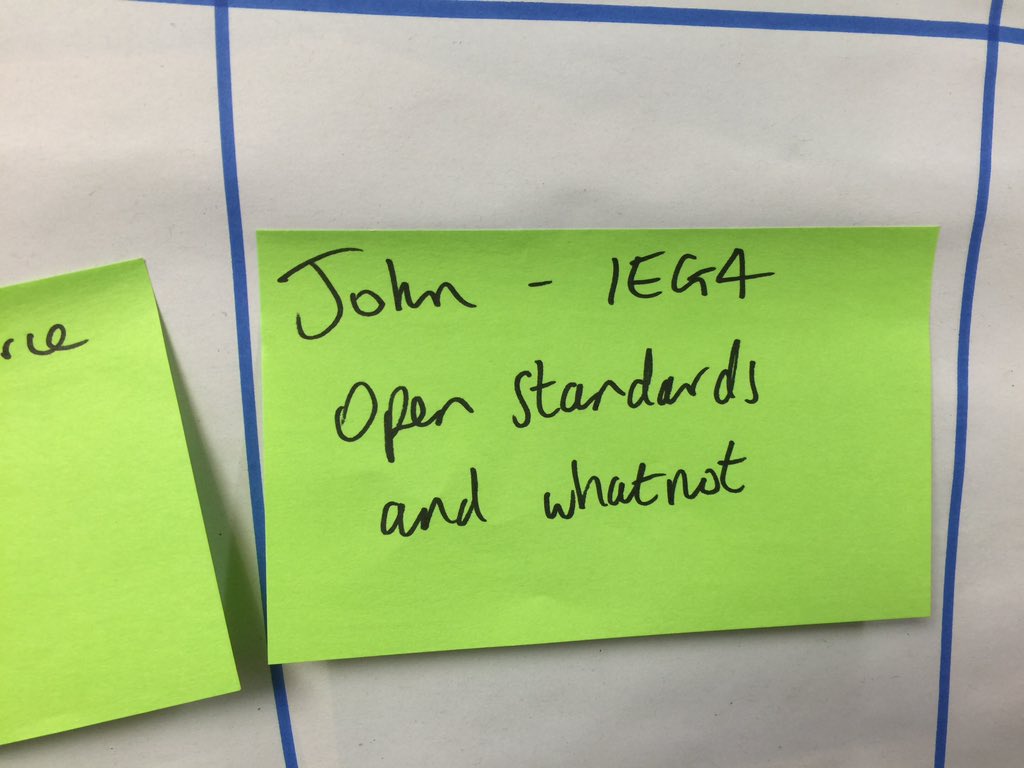 John - IEG4
Open standards
and whatnot